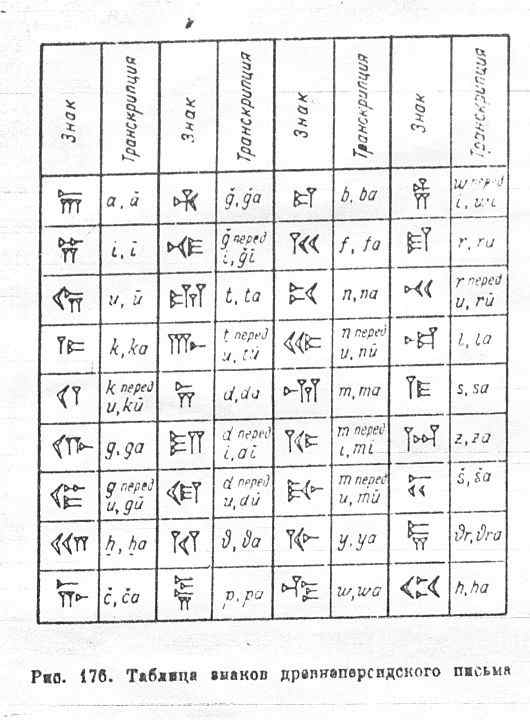 Знак Транскрипция Знак Транскрипция Знак Транскрипция Знак Транскрипция
𐎠 a, ā 𐎩 ǧ, ǧa 𐎲 b, ba 𐎻 w перед i, wi
𐎡 i, ī 𐎪 ǧ перед i, ǧi 𐎳 f, fa 𐎼 r, ra
𐎢 u, ū 𐎫 t, ta 𐎴 n, na 𐎽 r перед u, rū
𐎣 k, ka 𐎬 t перед u, tū 𐎵 n перед u, nū 𐎾 l, la
𐎤 k перед u, kū 𐎭 d, da 𐎶 m, ma 𐎿 s, sa
𐎥 g, ga 𐎮 d перед i, di 𐎷 m перед i, mi 𐏀 z, za
𐎦 g перед u, gū 𐎯 d перед u, dū 𐎸 m перед u, mū 𐏁 š, ša
𐎧 ḫ, ḫa 𐎰 ϑ, ϑa 𐎹 y, ya 𐏂 ϑr, ϑra
𐎨 č, ča 𐎱 p, pa 𐎺 w, wa 𐏃 h, ha
Рис. 176. Таблица знаков древнеперсидского письма